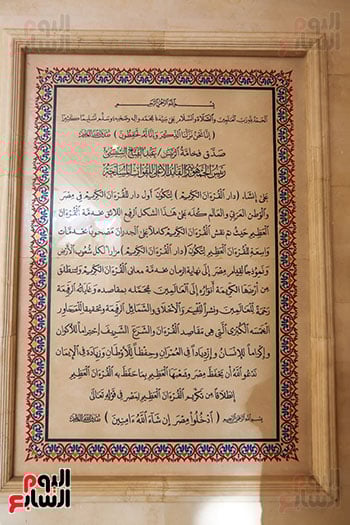 اليوم السابع
بسم الله الرحمن الرحيم
الحمد لله رب العالمين والصلاة والسلام على سيدنا محمد وآله وصحبه وسلم تسليما كثيرا
﴿ إنا نحن نزلنا الذكر وإنا له لحافظون ﴾
صدق فخامة الرئيس / عبد الفتاح السيسي
رئيس الجمهورية القائد الأعلى للقوات المسلحة
على إنشاء (دار القرآن الكريم) لتكون أول دار للقرآن الكريم في مصر
والوطن العربي والعالم كله على هذا الشكل الرفيع اللائق بعظمة القرآن
العظيم حيث تم نقش القرآن الكريم كاملا على الجدران مصحوبا بخدمات
واسعة للقرآن العظيم لتكون (دار القرآن الكريم) مزارا لكل شعوب الأرض
ونموذجا لقيام مصر إلى نهاية الزمان بخدمة معاني القرآن الكريم وتنطلق
من أرضها الكريمة أنواره إلى العالمين محملة بمقاصده وغاياته الرفيعة
رحمة للعالمين ونشرا للقيم والأخلاق والشمائل الرفيعة وتحقيقا للمحاور
الخمسة الكبرى التي هي مقاصد القرآن والشرع الشريف احتراما للأكوان
وإكراما للإنسان وازديادا في العمران وحفظا للأوطان وزيادة في الإيمان
ندعو الله أن يحفظ مصر وشعبها العظيم بما حفظ به القرآن العظيم
إنطلاقا من تكريم القرآن العظيم لمصر في قوله تعالى
بسم الله الرحمن الرحيم ﴿ ادخلوا مصر إن شاء الله آمنين ﴾
اليوم السابع
اليوم السابع